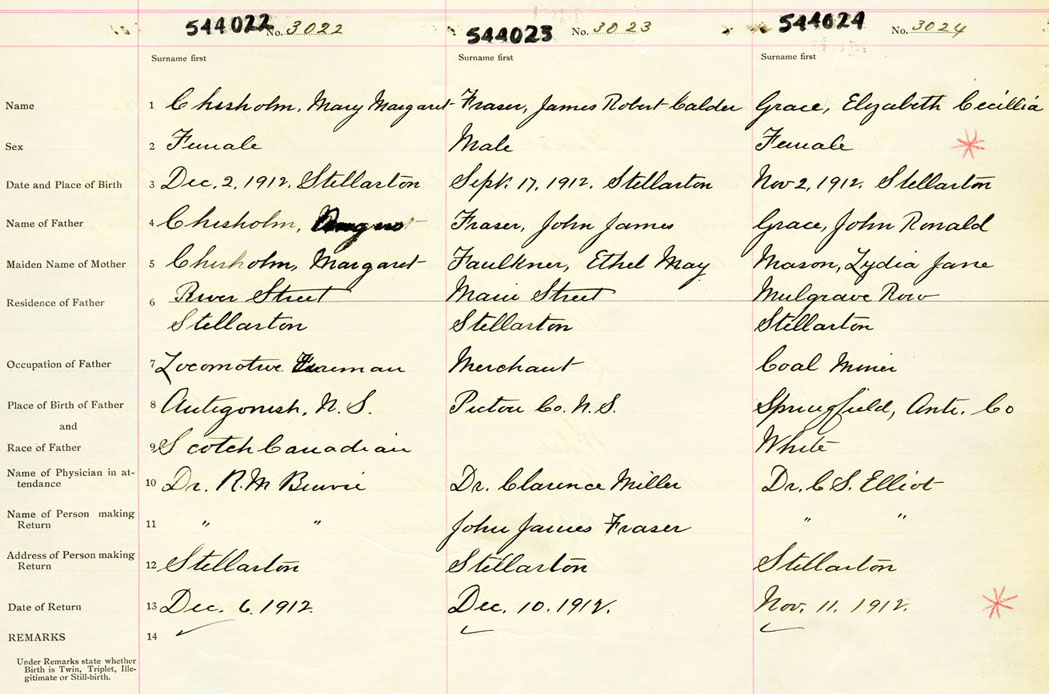 544022 No. 3022 544023 No. 3023 544024 No. 3024
Surname first Surname first Surname first
Name 1 Chisholm, Mary Margaret Fraser, James Robert Calder Grace, Elizabeth Cecillia
Sex 2 Female Male Female
Date and Place of Birth 3 Dec. 2, 1912. Stellarton Sept. 17, 1912. Stellarton Nov 2, 1912. Stellarton
Name of Father 4 Chisholm, Fraser, John James Grace, John Ronald
Maiden Name of Mother 5 Chisholm, Margaret Faulkner, Ethel May Mason, Lydia Jane
Residence of Father 6 River Street Marie Street Mulgrave Row
Stellarton Stellarton Stellarton
Occupation of Father 7 Locomotive Merchant Coal Miner
Place of Birth of Father 8 Antigonish, N. S. Pictou Co. N. S. Springfield, Ant. Co
and
Race of Father 9 Scotch Canadian White
Name of Physician in at-
tendance 10 Dr. Dr. Clarence Miller Dr. C S. Elliot
Name of Person making
Return 11 " " John James Fraser " "
Address of Person making
Return 12 Stellarton Stellarton Stellarton
Date of Return 13 Dec. 6. 1912. Dec. 10. 1912. Nov. 11. 1912.
REMARKS 14
Under Remarks state whether
Birth is Twin, Triplet, Ille-
gitimate or Still-birth.